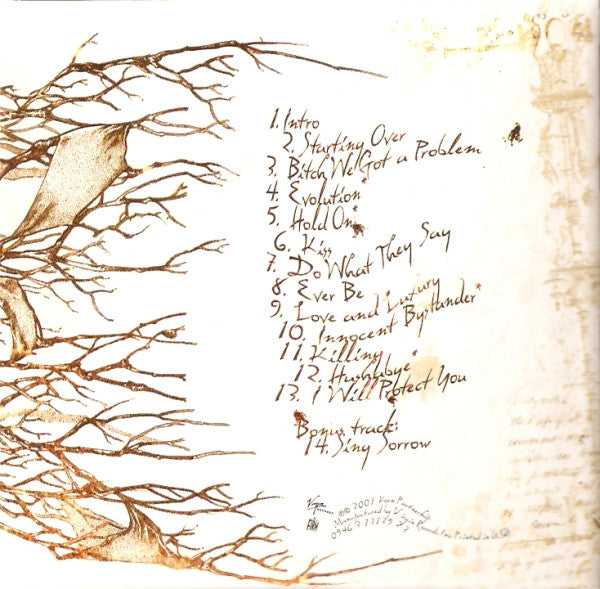 1. Intro
2. Starting Over
3. Bitch We Got a Problem
4. Evolution*
5. Hold On*
6. Kiss
7. Do What They Say
8. Ever Be
9. Love and Luxury
10. Innocent Bystander*
11. Killing
12. Hushabye*
13. I Will Protect You
Bonus track:
14. Sing Sorrow
℗© 2007
Manufactured by